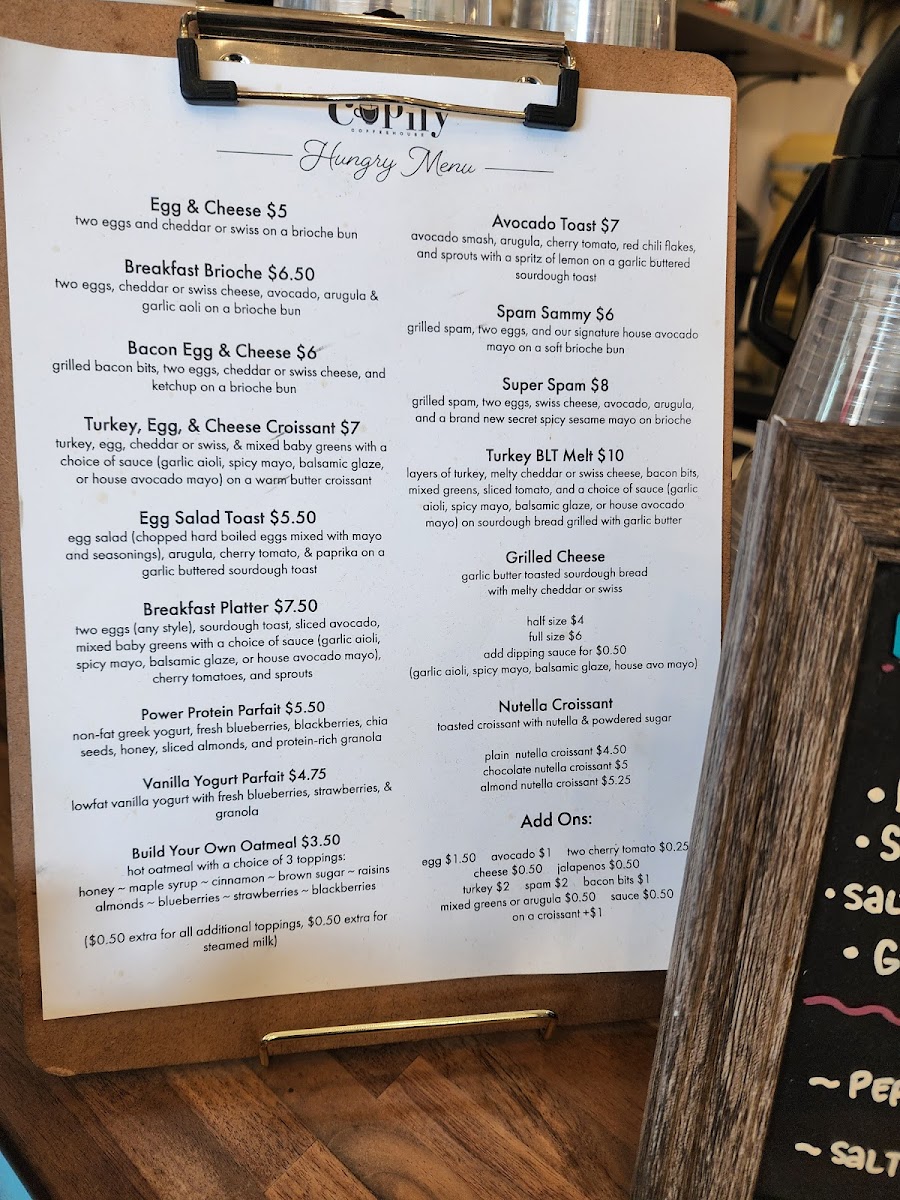 CUPIFY
COFFEEHOUSE
Hungry Menu
Egg & Cheese $5
two eggs and cheddar or swiss on a brioche bun
Breakfast Brioche $6.50
two eggs, cheddar or swiss cheese, avocado, arugula &
garlic aoli on a brioche bun
Bacon Egg & Cheese $6
grilled bacon bits, two eggs, cheddar or swiss cheese, and
ketchup on a brioche bun
Turkey, Egg, & Cheese Croissant $7
turkey, egg, cheddar or swiss, & mixed baby greens with a
choice of sauce (garlic aioli, spicy mayo, balsamic glaze,
or house avocado mayo) on a warm butter croissant
Egg Salad Toast $5.50
egg salad (chopped hard boiled eggs mixed with mayo
and seasonings), arugula, cherry tomato, & paprika on a
garlic buttered sourdough toast
Breakfast Platter $7.50
two eggs (any style), sourdough toast, sliced avocado,
mixed baby greens with a choice of sauce (garlic aioli,
spicy mayo, balsamic glaze, or house avocado mayo),
cherry tomatoes, and sprouts
Power Protein Parfait $5.50
non-fat greek yogurt, fresh blueberries, blackberries, chia
seeds, honey, sliced almonds, and protein-rich granola
Vanilla Yogurt Parfait $4.75
lowfat vanilla yogurt with fresh blueberries, strawberries, &
granola
Build Your Own Oatmeal $3.50
hot oatmeal with a choice of 3 toppings:
honey ~ maple syrup ~ cinnamon ~ brown sugar ~ raisins
almonds ~ blueberries ~ strawberries ~ blackberries
($0.50 extra for all additional toppings, $0.50 extra for
steamed milk)
Avocado Toast $7
avocado smash, arugula, cherry tomato, red chili flakes,
and sprouts with a spritz of lemon on a garlic buttered
sourdough toast
Spam Sammy $6
grilled spam, two eggs, and our signature house avocado
mayo on a soft brioche bun
Super Spam $8
grilled spam, two eggs, swiss cheese, avocado, arugula,
and a brand new secret spicy sesame mayo on brioche
Turkey BLT Melt $10
layers of turkey, melty cheddar or swiss cheese, bacon bits,
mixed greens, sliced tomato, and a choice of sauce (garlic
aioli, spicy mayo, balsamic glaze, or house avocado
mayo) on sourdough bread grilled with garlic butter
Grilled Cheese
garlic butter toasted sourdough bread
with melty cheddar or swiss
half size $4
full size $6
add dipping sauce for $0.50
(garlic aioli, spicy mayo, balsamic glaze, house avo mayo)
Nutella Croissant
toasted croissant with nutella & powdered sugar
plain nutella croissant $4.50
chocolate nutella croissant $5
almond nutella croissant $5.25
Add Ons:
egg $1.50 avocado $1 two cherry tomato $0.25
cheese $0.50 jalapenos $0.50
turkey $2 spam $2 bacon bits $1
mixed greens or arugula $0.50 sauce $0.50
on a croissant +$1